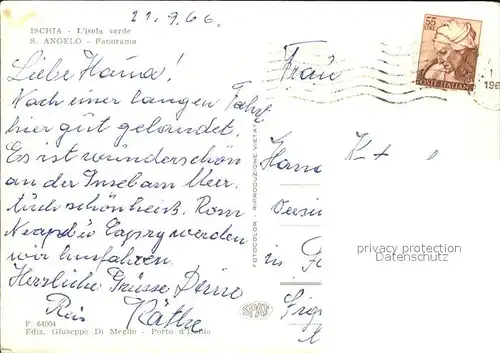 21.9.66.
ISCHIA - L'isola verde
S. ANGELO - Panorama
Liebe Hanna!
Nach einer langen Fahrt
hier gut gelandet.
Es ist wunderschön
an der Insel am Meer.
Auch schön heiß. Rom
Neapel u Capry werden
wir hinfahren.
Herzliche Grüsse Deine
Käthe
P. 64904
Ediz. Giuseppe Di Meglio - Porto d'Ischia
FOTOCOLOR - RIPRODUZIONE VIETATA
55
LIRE
POSTE ITALIANE
196
Frau
Hann
in
privacy protection
Datenschutz.